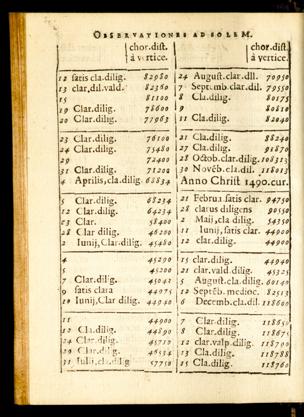 OBSERVATIONES AD SOLEM.
chor.dist.
à vertice.
12 satis cla.dilig. 82980
13 clar.dil.vald. 82360
15 81100
19 Clar.dilig. 78600
20 Clar.dilig. 77963
23 Clar.dilig. 76100
24 Clar.dilig. 75480
29 72400
31 Clar.dilig. 71200
4 Aprilis,cla.dilig. 68834
5 Clar.dilig. 68234
12 Clar.dilig. 64234
23 Clar. 58400
28 Clar dilig. 46200
2 Iunij,Clar.dilig. 45480
4 45290
5 45200
7 Clar.dilig. 45042
9 satis clara 44975
10 Iunij,Clar dilig. 44940
11 44900
12 Cla.dilig. 44890
24 Clar.dilig. 45710
29 Clar.dilig. 46534
31 Iulij cla.dilig. 57750
chor.dist.
à vertice.
24 August.clar.dil. 70950
7 Sept.mb clar.dil. 79550
8 Cla.dilig. 80175
9 80810
11 Cla.dilig. 82040
21 Cla.dilig. 88240
27 Cla.dilig. 91870
28 Octob.clar.dilig. 108313
30 Novẽb.cla.dil. 118013
Anno Christi 1490.cur.
21 Februa satis clar. 94750
28 clarus diligens 90550
2 Maij,cla dilig. 54750
11 Iunij, satis clar. 44900
12 clar.dilig. 44900
15 clar.dilig. 44940
21 clar.vald.dilig. 45325
5 August.cla.dilig. 60140
12 Septẽb.medioc. 82513
6 Decemb.cla.dil. 118600
7 Clar.dilig. 118650
8 Clar.dilig. 118675
12 clar.valp.dilig. 118790
13 Cla.dilig. 118788
15 Cla.dilig. 118760